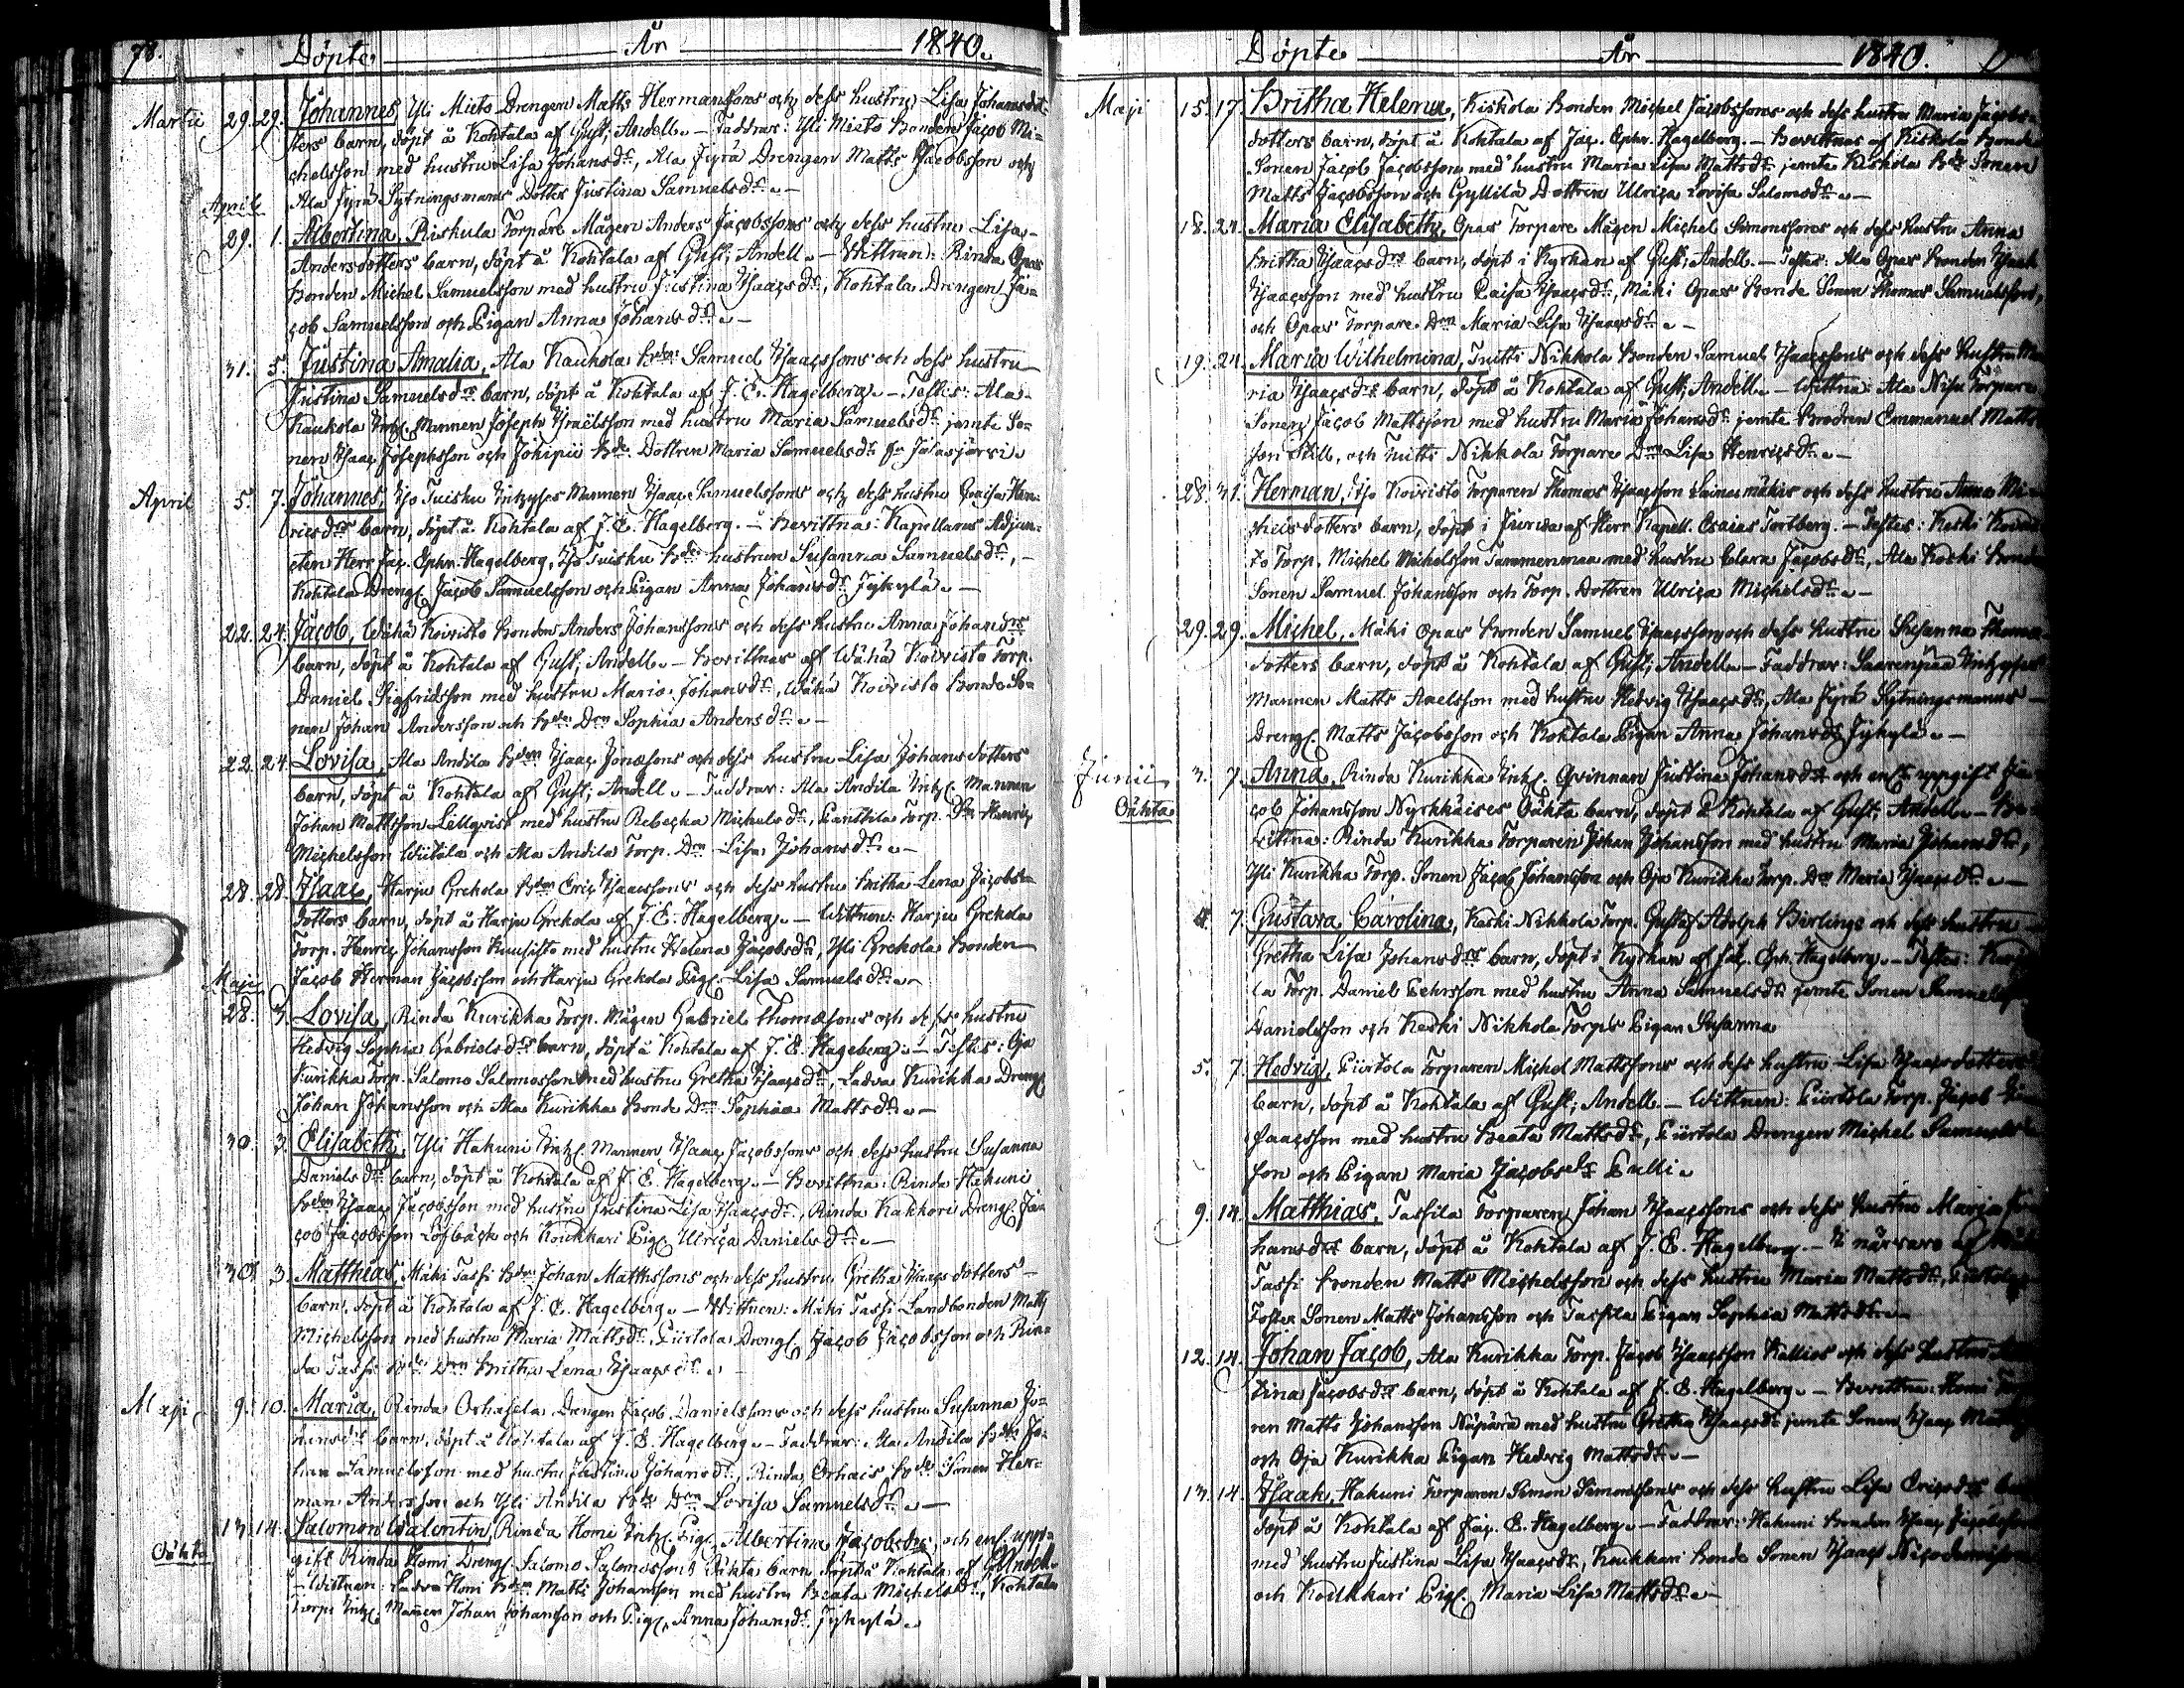 78. Döpte År 1840.
Martii 29. 29. Johannes, Yli Mieto Drengen Matts Hermanssons och dess hustru Lisa Johansdot-
ters barn, döpt å Kohtala af Gust: Andell. – Faddrar: Yli Mieto Bonden Jacob Mi-
chelsson med hustru Lisa Johansdr, Ala Jyrä Drengen Matts Jacobsson och
Ala Jyrä Sytningsmans Dotter Justina Samuelsdr. –
April
29. 1. Albertina, Riskula Torpare Mågen Anders Jacobssons och dess hustru Lisa
Andersdotters barn, döpt å Kohtala af Gust: Andell. – Wittnen: Rinda Opas
Bonden Michel Samuelsson med hustru Justina Isaacsdr, Kohtala Drengen Ja-
cob Samuelsson och Pigan Anna Johansdr. –
31. 5. Justina Amalia, Ala Kaukola Bden Samuel Isaacssons och dess hustru
Justina Samuelsdrs barn, döpt å Kohtala af J. E. Hagelberg. – Testes: Ala
Kaukola Inh. Mannen Joseph Israëlsson med hustru Maria Samuelsdr jemte So-
nen Isaac Josephsson och Jokipii Bde Dottren Maria Samuelsdr fr Jalasjärvi.
April 5. 7. Johannes, Yjo Tuisku Inhyses Mannen Isaac Samuelssons och dess hustru Caisa Hen-
ricsdrs barn, döpt å Kohtala af J. E. Hagelberg. – Bevittnas: Kapellans Adjun-
cten Herr Jac. Ephr. Hagelberg, Yjo Tuisku Bde hustrun Susanna Samuelsdr,
Kohtala Dreng. Jacob Samuelsson och Pigan Anna Johansdr Jykylä. –
22. 24. Jacob, Wähä Koivisto Bonden Anders Johanssons och dess hustru Anna Johansdrs
barn, döpt å Kohtala af Gust: Andell. – Bevittnas af Wähä Koivisto Torp.
Daniel Sigfridsson med hustru Maria Johansdr, Wähä Koivisto Bonde So-
nen Johan Andersson och Bde Drn Sophia Andersdr. –
22. 24. Lovisa, Ala Andila Bden Isaac Jonæsons och dess hustru Lisa Johansdotters
barn, döpt å Kohtala af Gust: Andell. – Faddrar: Ala Andila Inh. Mannen
Johan Mattsson Lillqvist med hustru Rebecka Michelsdr, Panttila Torp. Henric
Michelsson Wiitala och Ala Andila Torp. Drn Lisa Johansdr. –
28. 28. Isaac, Harju Grekola Bden Eric Isaacssons och dess hustru Britha Lena Jacobs-
dotters barn, döpt å Harju Grekola af J. E. Hagelberg. – Wittnen: Harju Grekola
Torp. Henric Johansson Kuusisto med hustru Helena Jacobsdr, Yli Grekola Bonden
Jacob Herman Jacobsson och Harju Grekola Pig. Lisa Samuelsdr. –
Maji
28. 3. Lovisa, Rinda Kurikka Torp. Mågen Gabriel Thomæsons och dess hustru
Hedvig Sophia Gabrielsdrs barn, döpt å Kohtala af J. E. Hageberg. – Testes: Oja
Kurikka Torp. Salomo Salomosson med hustru Gretha Isaacsdr, Ladva Kurikka Dreng
Johan Johansson och Ala Kurikka Bonde Drn Sophia Mattsdr. –
30. 3. Elisabeth, Yli Hakuni Inh. Mannen Isaac Jacobssons och dess hustru Susanna
Danielsdrs barn, döpt å Kohtala af J. E. Hagelberg. – Bevittna: Rinda Hakuni
Bden Isaac Jacobsson med hustru Justina Lisa Isaacsdr, Rinda Kakkori Dreng. Ja-
cob Jacobsson Löfbäck och Koukkari Pig. Ulrica Danielsdr. –
30. 3. Matthias, Mäki Tassi Bden Johan Matthssons och dess hustru Gretha Isaacsdotters
barn, döpt å Kohtala af J. E. Hagelberg. – Wittnen: Mäki Tassi Landbonden Matts
Michelsson med hustru Maria Mattsdr, Piirtola Dreng. Jacob Jacobsson och Rin-
da Tassi Bde Drn Britha Lena Isaacsdr. –
Maji 9. 10. Maria, Rinda Orhasela Drengen Jacob Danielssons och dess hustru Susanna Jo-
hansdrs barn, döpt å Kohtala af J. E. Hagelberg. – Faddrar: Ala Andila Bde Jo-
han Samuelsson med hustru Justina Johansdr, Rinda Orhais Bde Sonen Her-
man Andersson och Yli Andila Bde Drn Lovisa Samuelsdr. –
13. 14. Salomon Walentin, Rinda Komi Inh. Pig. Albertina Jacobsdrs, och enl. upp-
Oäkta gift Rinda Komi Dreng. Salomo Salomossons Oäkta barn, döpt å Kohtala af G. Andell.
– Wittnen: Ladva Komi Bden Matts Johansson med hustru Beata Michelsdr, Kohtala
Torps Inh. Mannen Johan Johansson och Pig. Anna Johansdr Jykylä.
Döpte År 1840.
Maji 15. 17. Britha Helena, Kiskola Bonden Michel Jacobssons och dess hustru Maria Jacobs-
dotters barn, döpt å Kohtala af Jac. Ephr. Hagelberg. – Bevittnas af Kiskola Bonde
Sonen Jacob Jacobsson med hustru Maria Lisa Mattsdr jemte Kiskola Bde Sonen
Matts Jacobsson och Gyllilä Dottren Ulrica Lovisa Salomosdr. –
18. 24. Maria Elisabeth, Opas Torpare Mågen Michel Simonssons och dess hustru Anna
Britha Isaacsdrs barn, döpt i Kyrkan af Gust: Andell. – Testes: Ala Opas Bonden Isaak
Isaacsson med hustru Caisa Isaacsdr, Mäki Opas Bonde Sonen Thomas Samuelsson,
och Opas Torpare Drn Maria Lisa Isaacsdr. –
19. 24. Maria Wilhelmina, Tuitti Nikkola Bonden Samuel Isaacssons och dess hustru Ma-
ria Isaacsdrs barn, döpt å Kohtala af Gust: Andell. – Wittna: Ala Nisu Torpare
Sonen Jacob Mattsson med hustru Maria Johansdr jemte Brodren Emmanuel Matts-
son Still, och Tuitti Nikkola Torpare Drn Lisa Henricsdr. –
28. 31. Herman, Yjo Koivisto Torparen Thomas Isaacsson Lainesmäkis och dess hustru Anna Mi-
chelsdotters barn, döpt i Jurva af Herr Kapell. Esaias Tortberg. – Testes: Keski Koivis-
to Torp. Michel Michelsson Tammenmaa med hustru Clara Jacobsdr, Ala Koski Bonde
Sonen Samuel Johansson och Torp. Dottren Ulrica Michelsdr. –
29. 29. Michel, Mäki Opas Bonden Samuel Isaacssons och dess hustru Susanna Thomæ
dotters barn, döpt å Kohtala af Gust: Andell. – Faddrar: Saarenpää Inhyses
Mannen Matts Axelsson med hustru Hedvig Isaacsdr, Ala Jyrä Sytningsmanns
Dreng. Matts Jacobsson och Kohtala Pigan Anna Johansdr Jykylä. –
Junii 3. 7. Anna, Rinda Kurikka Inh. Qvinnan Justina Johansdrs och enl. uppgift Ja-
Oäkta cob Johansson Nyrhkäises Oäkta barn, döpt å Kohtala af Gust: Andell. – Be-
vittna: Rinda Kurikka Torparen Johan Johansson med hustru Maria Johansdr,
Yli Kurikka Torp. Sonen Jacob Johansson och Oja Kurikka Torp. Drn Maria Isaacsdr. –
4. 7. Gustava Carolina, Keski Nikkola Torp. Gustaf Adolph Birlings och dess hustru
Gretha Lisa Johansdrs barn, döpt i Kyrkan af Jac. Eph. Hagelberg. – Testes:
la Torp. Daniel Pehrsson med hustru Anna Samuelsdr jemte Sonen Samuel
Danielsson och Keski Nikkola Torps Pigan Susanna
5. 7. Hedvig, Piirtola Torparen Michel Mattssons och dess hustru Lisa Isaacsdotters
barn, döpt å Kohtala af Gust: Andell. – Wittnen: Piirtola Torp. Jacob
Isaacsson med hustru Beata Mattsdr, Piirtola Drengen Michel Samuels-
son och Pigan Maria Jacobsdr Palli.
9. 14. Matthias, Tassila Torparen Johan Isaacssons och dess hustru Maria Jo-
hansdrs barn, döpt å Kohtala af J. E. Hagelberg. – I närvaro af Mäki
Tassi Bonden Matts Michelsson och dess hustru Maria Mattsdr,
Foster Sonen Matts Johansson och Tassila Pigan Sophia Mattsdr. –
12. 14. Johan Jacob, Ala Kurikka Torp. Jacob Isaacsson Kallios och dess hustru
tina Jacobsdrs barn, döpt å Kohtala af J. E. Hagelberg. – Bevittna: Komi
ren Matts Johansson Näpärä med hustru Gretha Isaacsdr jemte Sonen Isaac Matts
och Oja Kurikka Pigan Hedvig Mattsdr. –
13. 14. Isaak, Hakuni Torparen Simon Simonssons och dess hustru Lisa Ericsdrs barn
döpt å Kohtala af Jac. E. Hagelberg. – Faddrar: Hakuni Bonden Isaac Jacobsson
med hustru Justina Lisa Isaacsdr, Koukkari Bonde Sonen Isaac Nicodemisson
och Koukkari Pig. Maria Lisa Mattsdr. –